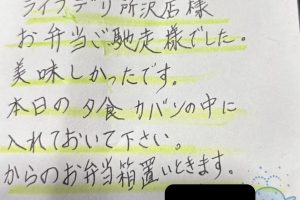 ライフデリ所沢店様
お弁当ご馳走様でした。
美味しかったです。
本日の夕食カバンの中に
入れておいて下さい。
からのお弁当箱置いときます。